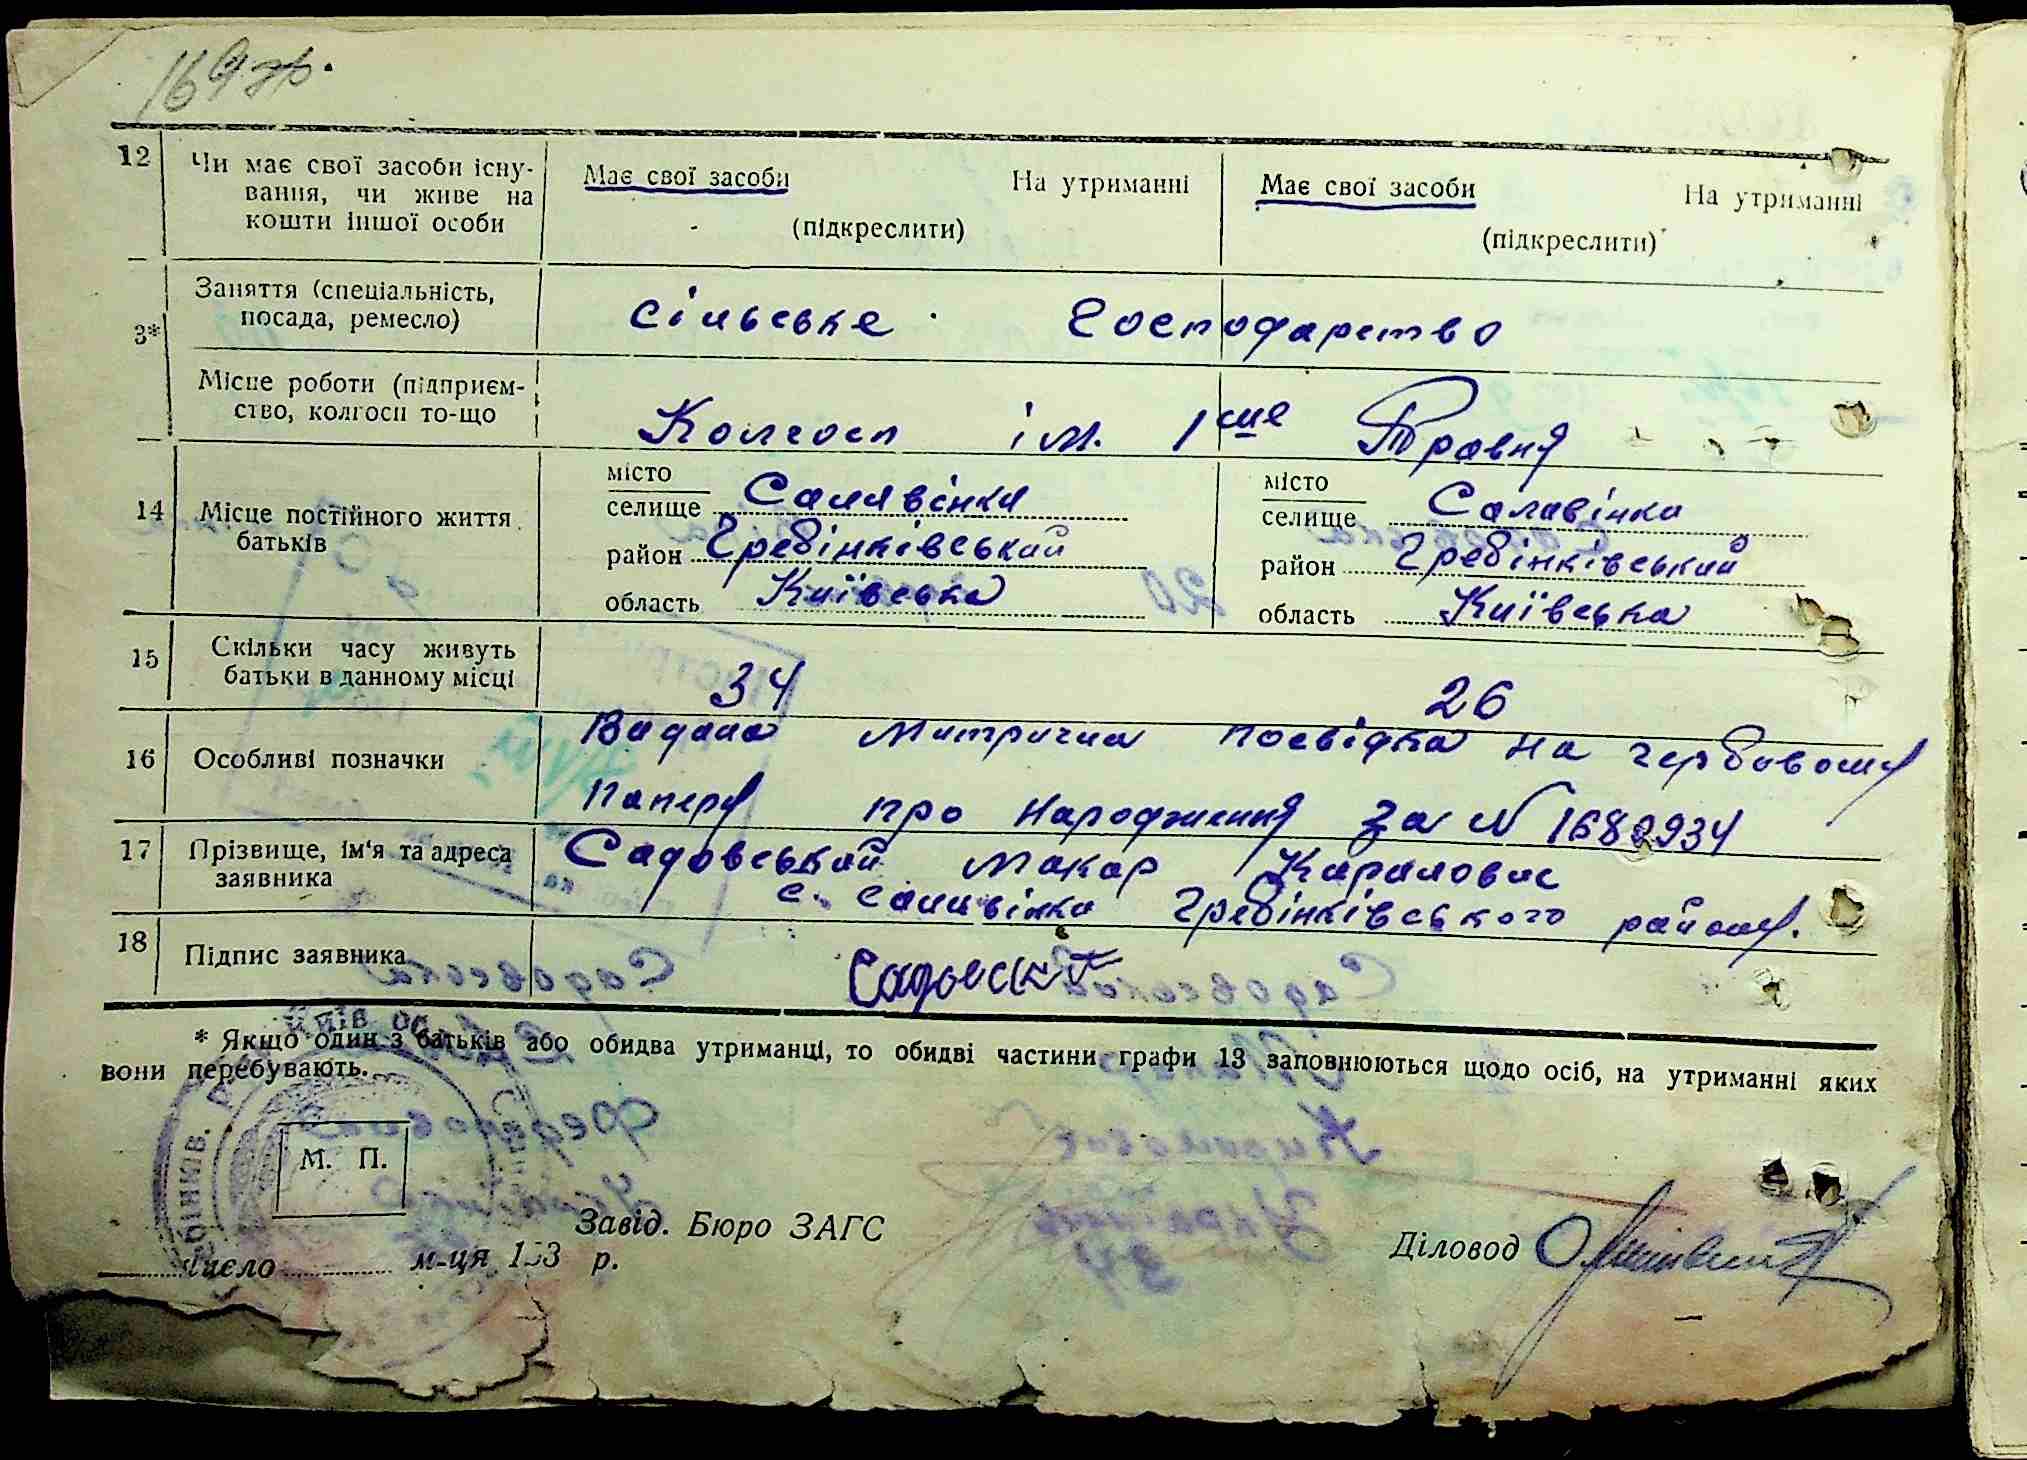 169 зв.
12 Чи має свої засоби існу-
вання, чи живе на
кошти іншої особи
Має свої засоби На утриманні
(підкреслити)
Має свої засоби На утриманні
(підкреслити)
3* Заняття (спеціальність,
посада, ремесло)
сільське господарство
Місце роботи (підприєм-
ство, колгосп то-що
Колгосп ім. 1ше Травня
14 Місце постійного життя
батьків
місто
селище Саливінки
район Гребінківський
область Київська
місто
селище Салавінки
район Гребінківський
область Київська
15 Скільки часу живуть
батьки в данному місці
34 26
16 Особливі позначки
Видана митрична посвідка на гербовому
паперу про народження за N 1682934
17 Прізвище, ім'я та адреса
заявника
Садовський Макар Карилович
с. Саливінки Гребінківського району.
18 Підпис заявника
Садовский
* Якщо один з батьків або обидва утриманці, то обидві частини графи 13 заповнюються щодо осіб, на утриманні яких
вони перебувають.
М. П.
Завід. Бюро ЗАГС
число м-ця 193 р.
Діловод